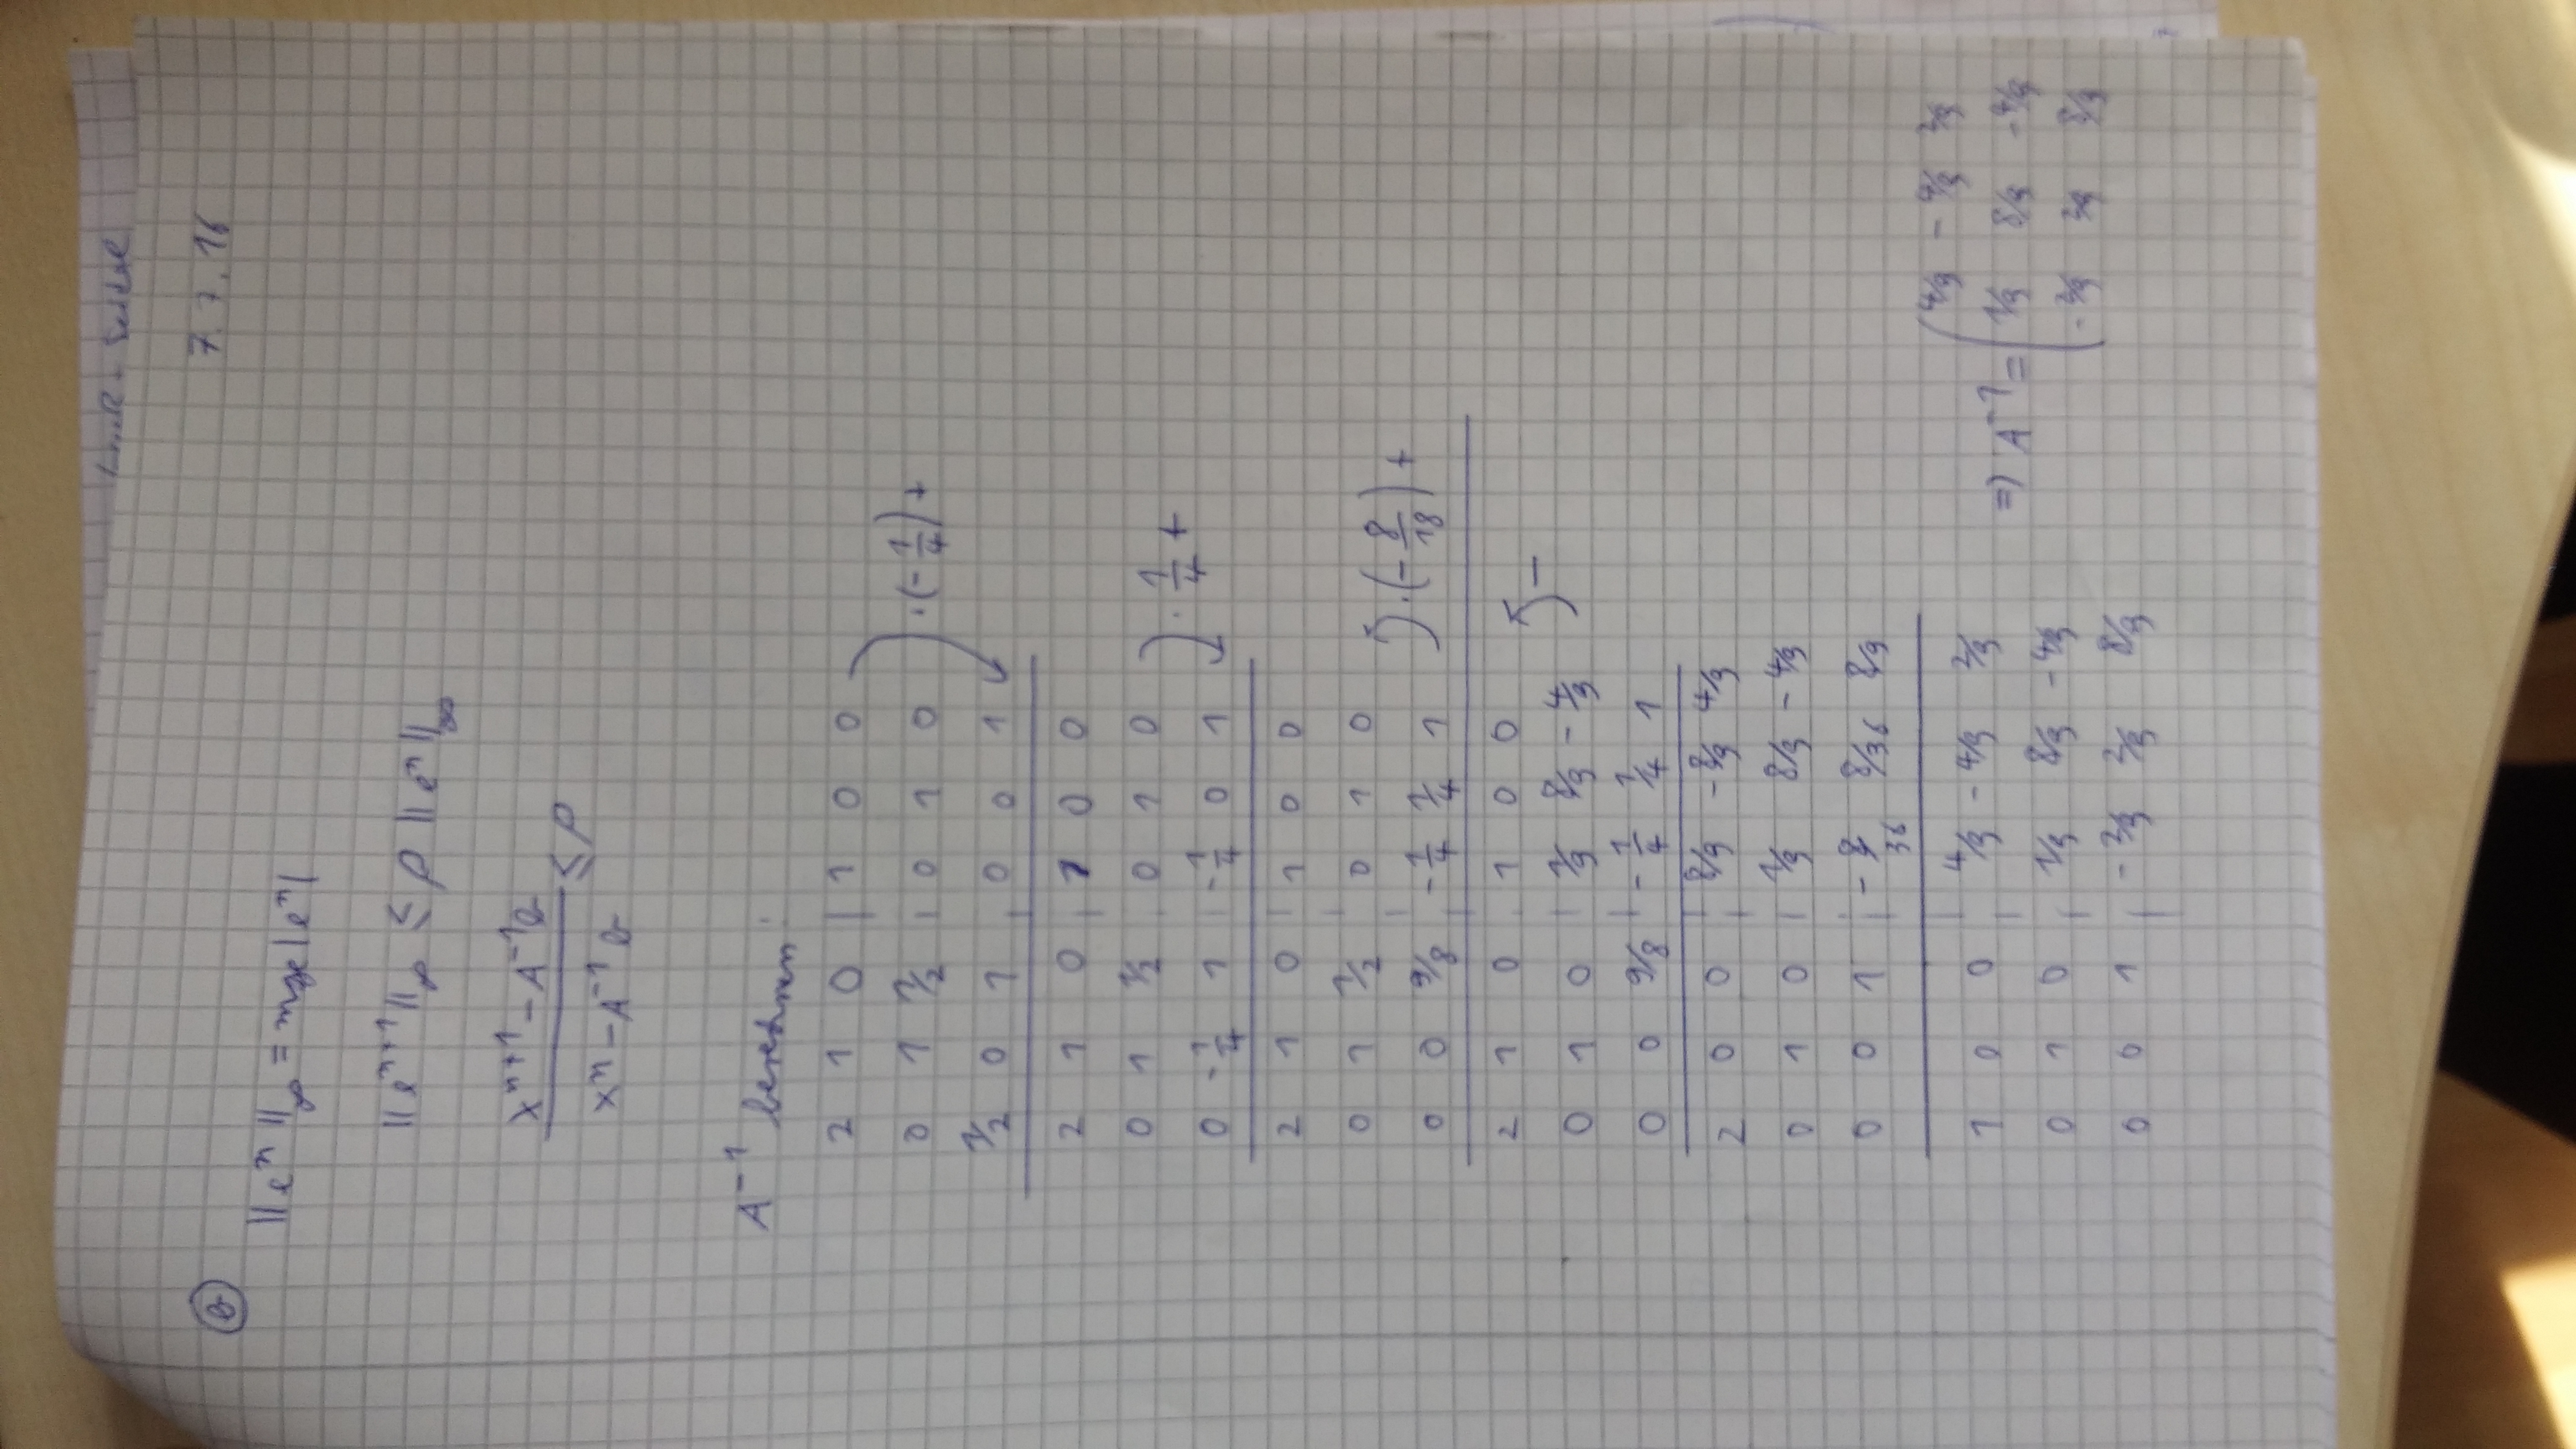 7.7.16
b
||eⁿ||∞ = max|eⁿ|
||eⁿ⁺¹||∞ ≤ ρ ||eⁿ||∞
(xⁿ⁺¹ − A⁻¹b)/(xⁿ − A⁻¹b) ≤ ρ
A⁻¹ berechnen:
2 1 0 | 1 0 0
0 1 1/2 | 0 1 0 ·(−1/4)+
1/2 0 1 | 0 0 1
2 1 0 | 1 0 0
0 1 1/2 | 0 1 0 ·1/4 +
0 −1/4 1 | −1/4 0 1
2 1 0 | 1 0 0
0 1 1/2 | 0 1 0 ·(−8/18)+
0 0 9/8 | −1/4 1/4 1
2 1 0 | 1 0 0 −
0 1 0 | 1/9 8/9 −4/9
0 0 9/8 | −1/4 1/4 1
2 0 0 | 8/9 −8/9 4/9
0 1 0 | 1/9 8/9 −4/9
0 0 1 | −8/36 8/36 8/9
1 0 0 | 4/9 −4/9 2/9
0 1 0 | 1/9 8/9 −4/9
0 0 1 | −2/9 2/9 8/9
=> A⁻¹ = (4/9 −4/9 2/9
1/9 8/9 −4/9
−2/9 2/9 8/9